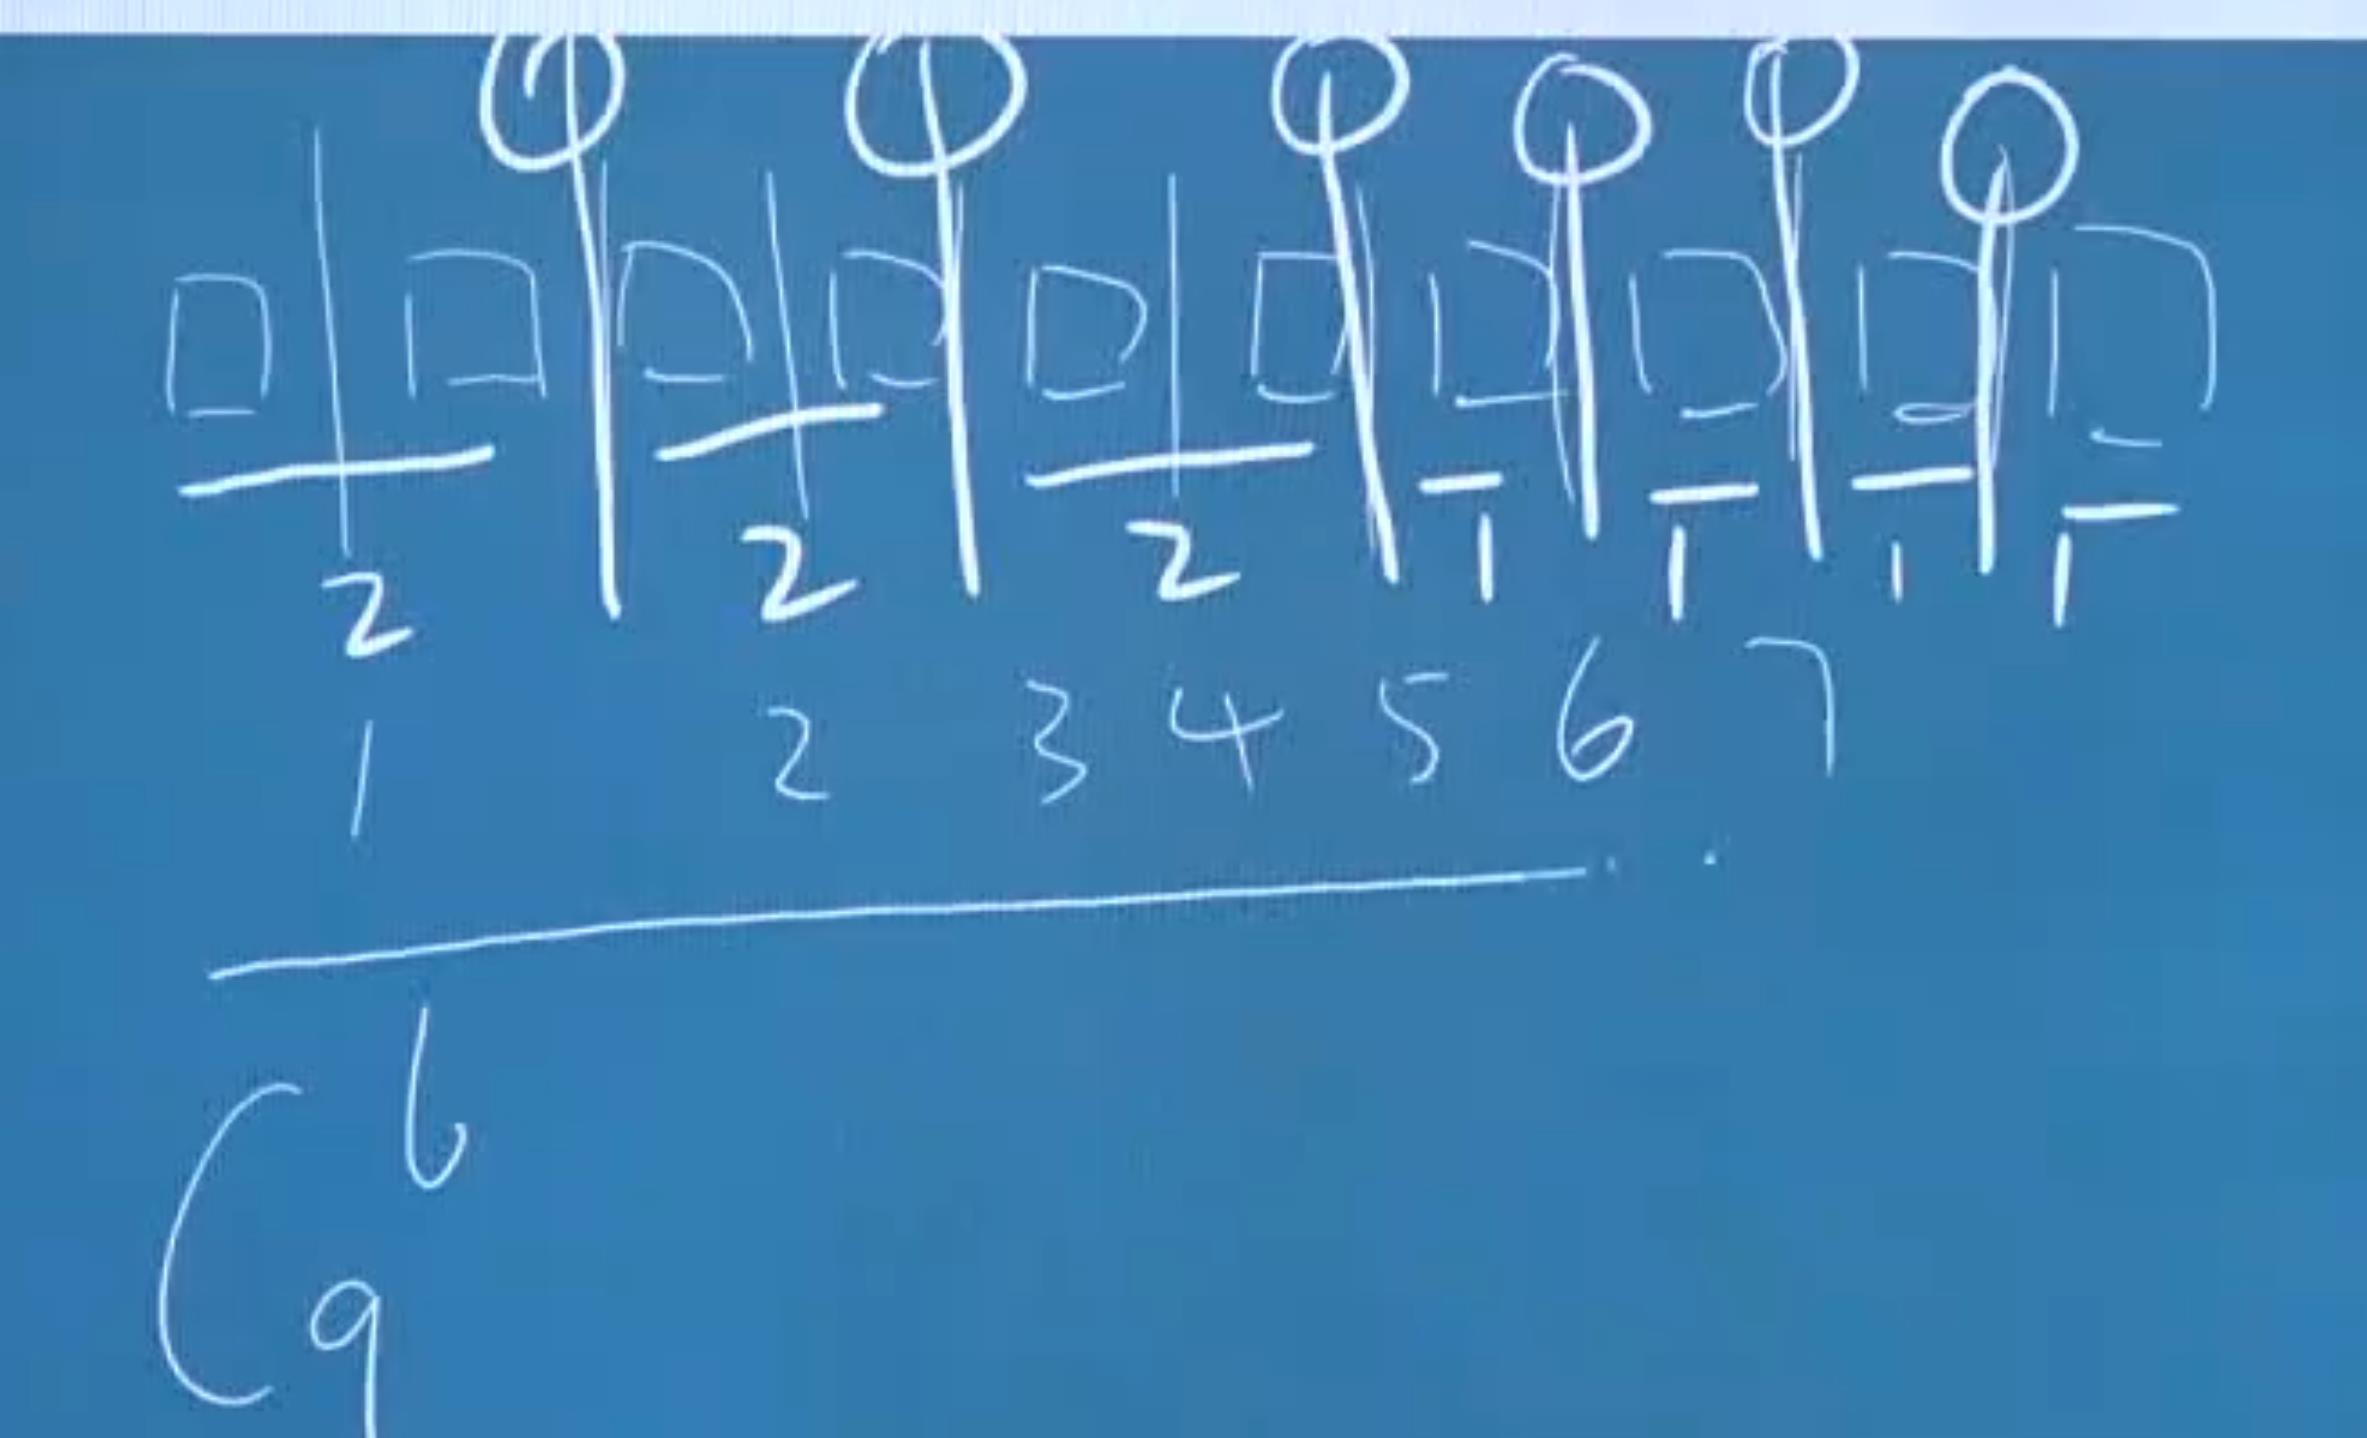 2 2 2 1 1 1 1
1 2 3 4 5 6 7
C 6
9